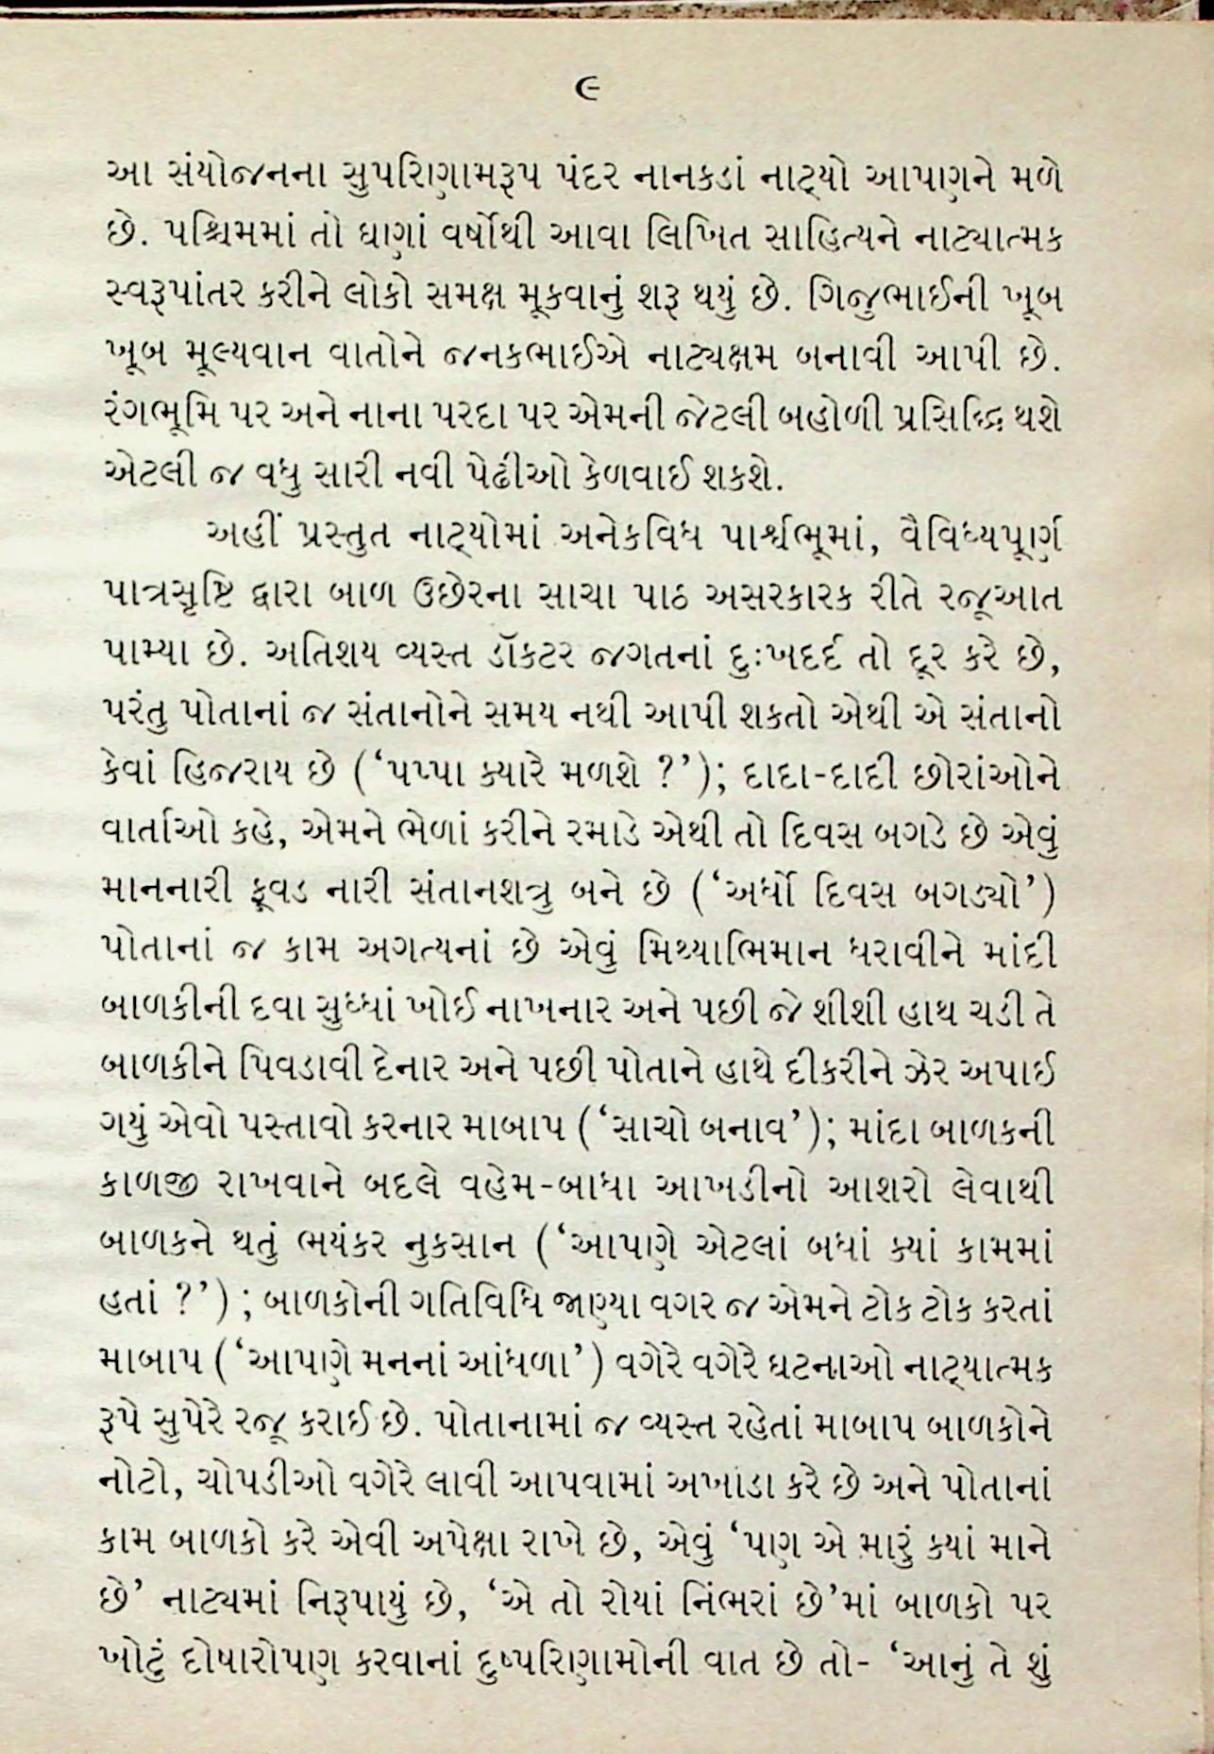 ૯
આ સંયોજનના સુપરિણામરૂપ પંદર નાનકડાં નાટ્યો આપણને મળે
છે. પશ્ચિમમાં તો ઘણાં વર્ષોથી આવા લિખિત સાહિત્યને નાટ્યાત્મક
સ્વરૂપાંતર કરીને લોકો સમક્ષ મૂકવાનું શરૂ થયું છે. ગિજુભાઈની ખૂબ
ખૂબ મૂલ્યવાન વાતોને જનકભાઈએ નાટ્યક્ષમ બનાવી આપી છે.
રંગભૂમિ પર અને નાના પરદા પર એમની જેટલી બહોળી પ્રસિદ્ધિ થશે
એટલી જ વધુ સારી નવી પેઢીઓ કેળવાઈ શકશે.
અહીં પ્રસ્તુત નાટ્યોમાં અનેકવિધ પાર્શ્વભૂમાં, વૈવિધ્યપૂર્ણ
પાત્રસૃષ્ટિ દ્વારા બાળ ઉછેરના સાચા પાઠ અસરકારક રીતે રજૂઆત
પામ્યા છે. અતિશય વ્યસ્ત ડૉક્ટર જગતનાં દુઃખદર્દ તો દૂર કરે છે,
પરંતુ પોતાનાં જ સંતાનોને સમય નથી આપી શકતો એથી એ સંતાનો
કેવાં હિજરાય છે (‘પપ્પા ક્યારે મળશે ?’); દાદા-દાદી છોરાંઓને
વાર્તાઓ કહે, એમને ભેળાં કરીને રમાડે એથી તો દિવસ બગડે છે એવું
માનનારી ફૂવડ નારી સંતાનશત્રુ બને છે (‘અર્ધો દિવસ બગડ્યો’)
પોતાનાં જ કામ અગત્યનાં છે એવું મિથ્યાભિમાન ધરાવીને માંદી
બાળકીની દવા સુધ્ધાં ખોઈ નાખનાર અને પછી જે શીશી હાથ ચડી તે
બાળકીને પિવડાવી દેનાર અને પછી પોતાને હાથે દીકરીને ઝેર અપાઈ
ગયું એવો પસ્તાવો કરનાર માબાપ (‘સાચો બનાવ’); માંદા બાળકની
કાળજી રાખવાને બદલે વહેમ-બાધા આખડીનો આશરો લેવાથી
બાળકને થતું ભયંકર નુકસાન (‘આપણે એટલાં બધાં ક્યાં કામમાં
હતાં ?’) ; બાળકોની ગતિવિધિ જાણ્યા વગર જ એમને ટોક ટોક કરતાં
માબાપ (‘આપણે મનનાં આંધળા’) વગેરે વગેરે ઘટનાઓ નાટ્યાત્મક
રૂપે સુપેરે રજૂ કરાઈ છે. પોતાનામાં જ વ્યસ્ત રહેતાં માબાપ બાળકોને
નોટો, ચોપડીઓ વગેરે લાવી આપવામાં અખાડા કરે છે અને પોતાનાં
કામ બાળકો કરે એવી અપેક્ષા રાખે છે, એવું ‘પણ એ મારું ક્યાં માને
છે’ નાટ્યમાં નિરૂપાયું છે, ‘એ તો રોયાં નિંભરાં છે’માં બાળકો પર
ખોટું દોષારોપણ કરવાનાં દુષ્પરિણામોની વાત છે તો- ‘આનું તે શું